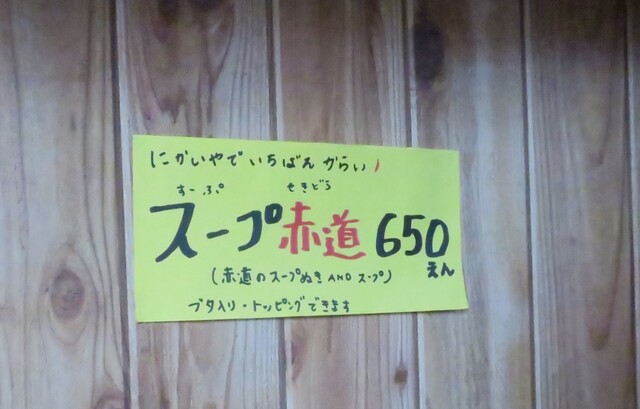 にかいやでいちばんからい
すーぷ せきどう
スープ赤道 650
えん
(赤道のスープぬき AND スープ)
ブタ入り・トッピングできます